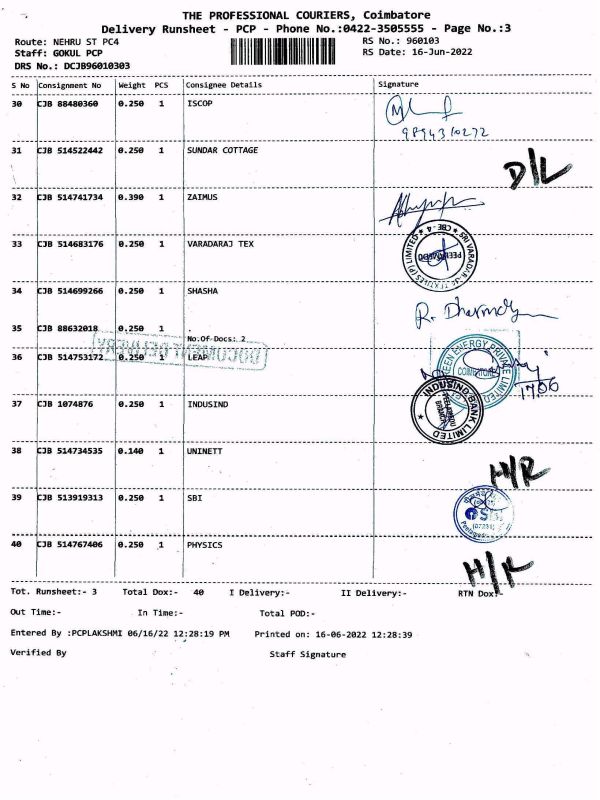 THE PROFESSIONAL COURIERS, Coimbatore
Delivery Runsheet - PCP - Phone No.:0422-3505555 - Page No.:3
Route: NEHRU ST PC4 RS No.: 960103
Staff: GOKUL PCP RS Date: 16-Jun-2022
DRS No.: DCJB96010303
S No Consignment No Weight PCS Consignee Details Signature
30 CJB 88480360 0.250 1 ISCOP
9894310272
31 CJB 514522442 0.250 1 SUNDAR COTTAGE
D/L
32 CJB 514741734 0.390 1 ZAIMUS
33 CJB 514683176 0.250 1 VARADARAJ TEX
34 CJB 514699266 0.250 1 SHASHA
35 CJB 88632018 0.250 1 .
No.Of Docs: 2
DOCUMENT DELIVERY
36 CJB 514753172 0.250 1 LEAP
GREEN ENERGY PRIVATE LIMITED
COIMBATORE
37 CJB 1074876 0.250 1 INDUSIND
INDUSIND BANK LIMITED
38 CJB 514734535 0.140 1 UNINETT
39 CJB 513919313 0.250 1 SBI
SBI
40 CJB 514767406 0.250 1 PHYSICS
Tot. Runsheet:- 3 Total Dox:- 40 I Delivery:- II Delivery:- RTN Dox:-
Out Time:- In Time:- Total POD:-
Entered By :PCPLAKSHMI 06/16/22 12:28:19 PM Printed on: 16-06-2022 12:28:39
Verified By Staff Signature